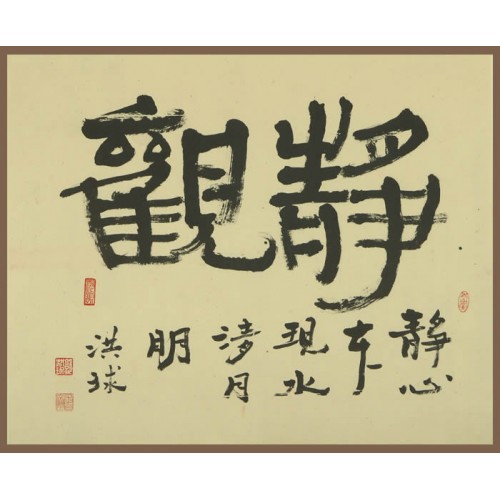 靜觀
靜心
本
現水
清月
明
洪球